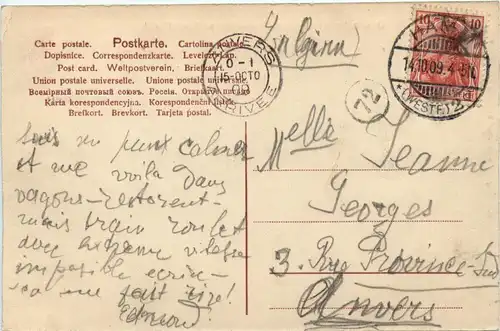 Carte postale. Postkarte. Cartolina postale.
Dopisnice. Correspondenzkarte. Levelező-lap.
Post card. Weltpostverein. Briefkaart.
Union postale universelle. Unione postale universale.
Всемірный почтовый союзъ. Россія. Открытое письмо.
Karta korespondencyjna. Korespondenční lístek.
Brefkort. Brevkort. Tarjeta postal.
ANVERS
0-1
15 OCTO
09
ARRIVÉE
10 10
14.10.09.4
(WESTF.) 2
72
un peux calmer
et me voila dans
wagons-restorent
mais train roule
avec extreme vitesse
impossible ecrir
ca me fait rire!
Melle Jeanne
Georges
3. Rue Province-Sud
Anvers